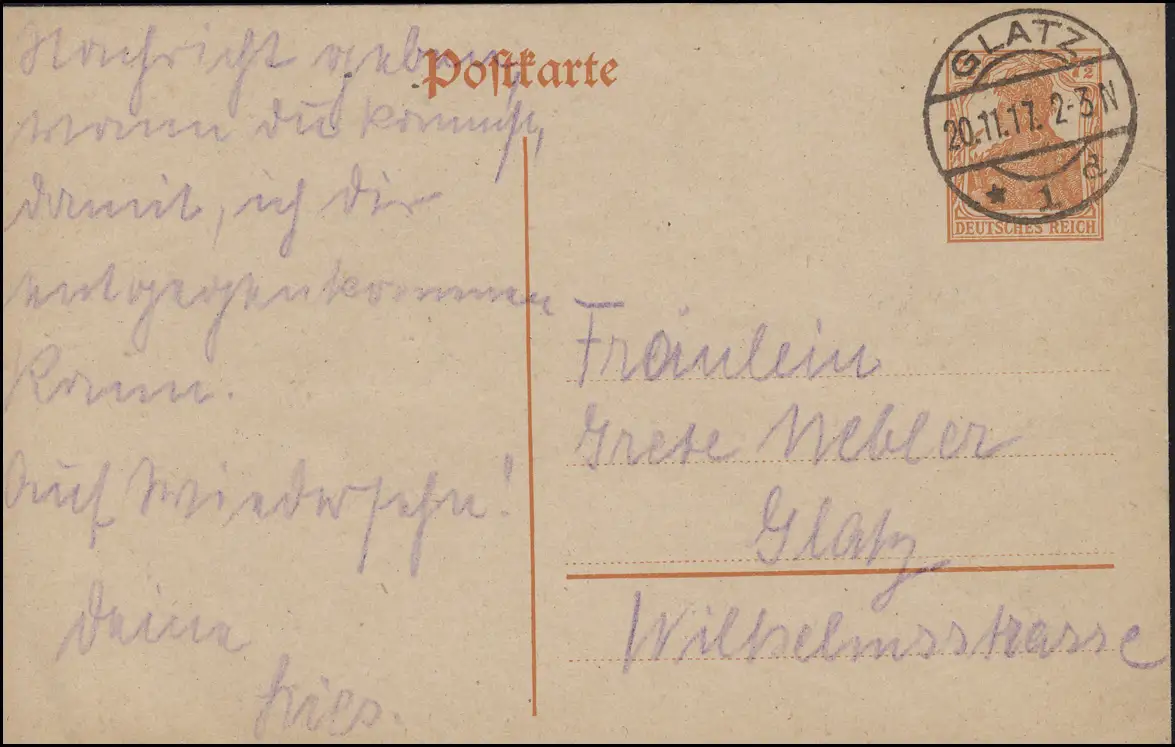 Nachricht geben,
wann du kommst,
damit, ich dir
entgegenkommen
kann.
Auf Wiedersehn!
Deine
Postkarte
GLATZ
20.11.17. 2-3 N
* 1 a
7½
DEUTSCHES REICH
Fräulein
Grete Nebler
Glatz
Wilhelmsstrasse